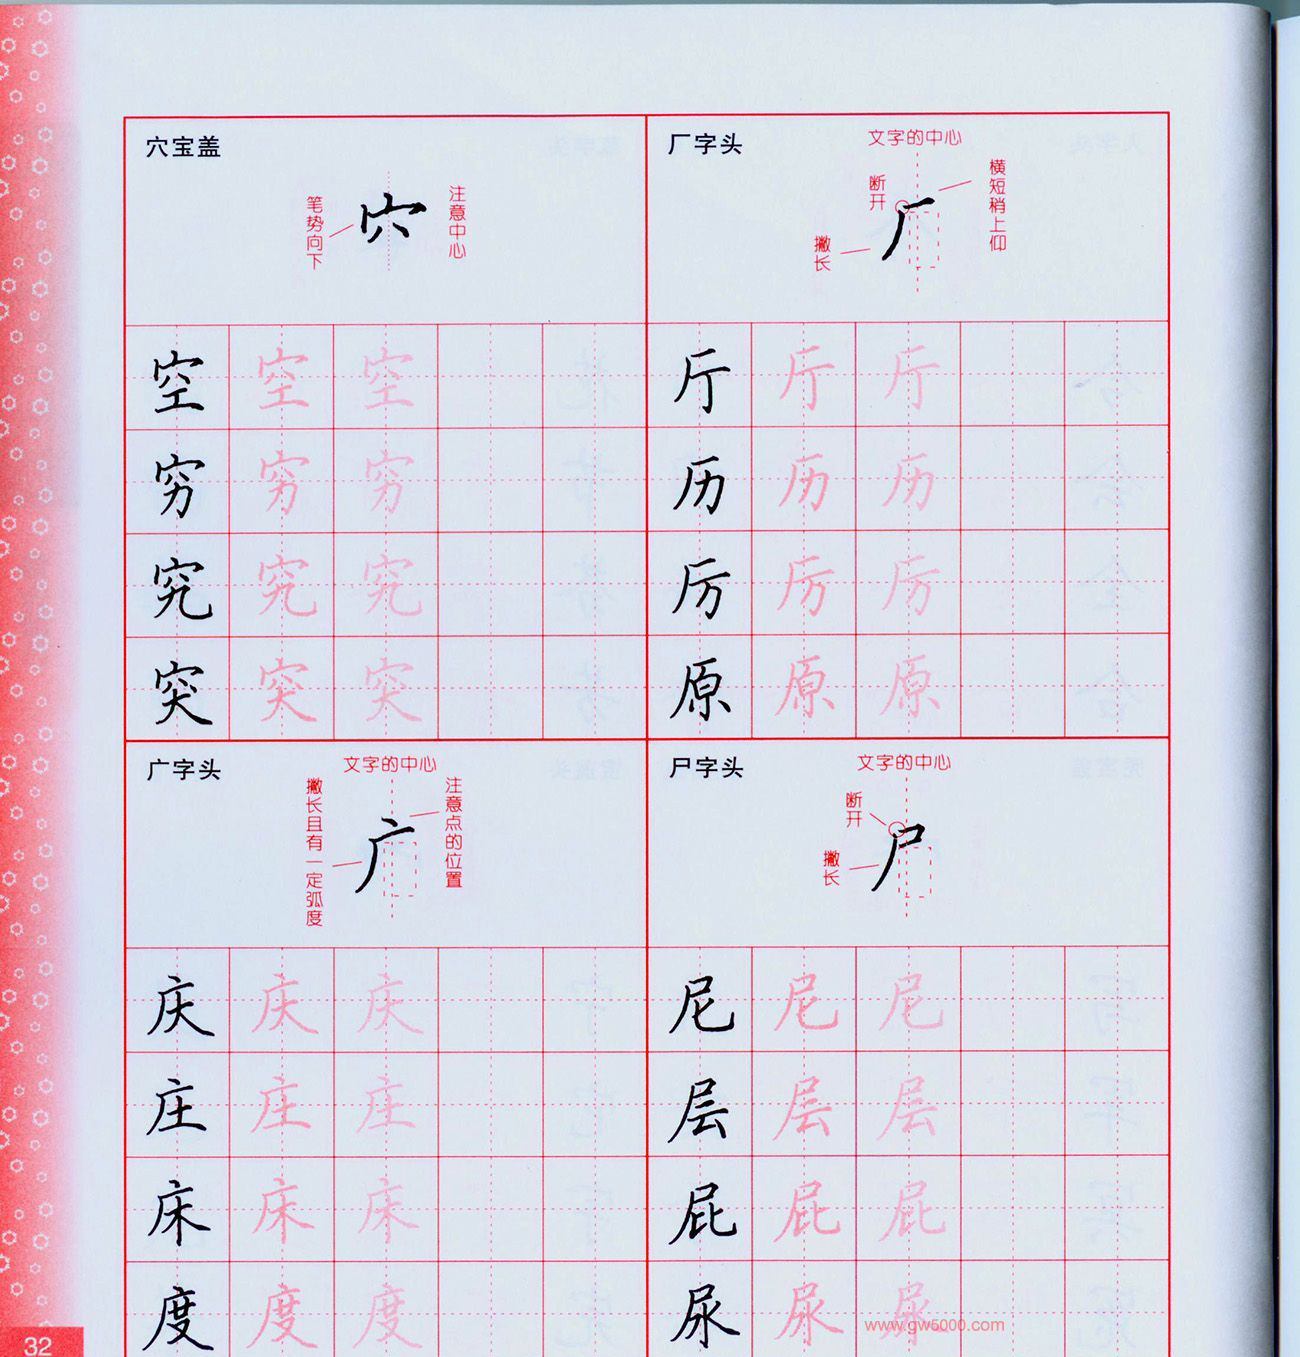 穴宝盖
笔势向下
注意中心
空 空 空
穷 穷 穷
究 究 究
突 突 突
厂字头
文字的中心
断开
横短稍上仰
撇长
厂
厅 厅 厅
历 历 历
厉 厉 厉
原 原 原
广字头
文字的中心
撇长且有一定弧度
注意点的位置
广
庆 庆 庆
庄 庄 庄
床 床 床
度 度 度
尸字头
文字的中心
断开
撇长
尸
尼 尼 尼
层 层 层
屁 屁 屁
尿 尿 尿
www.gw5000.com
32